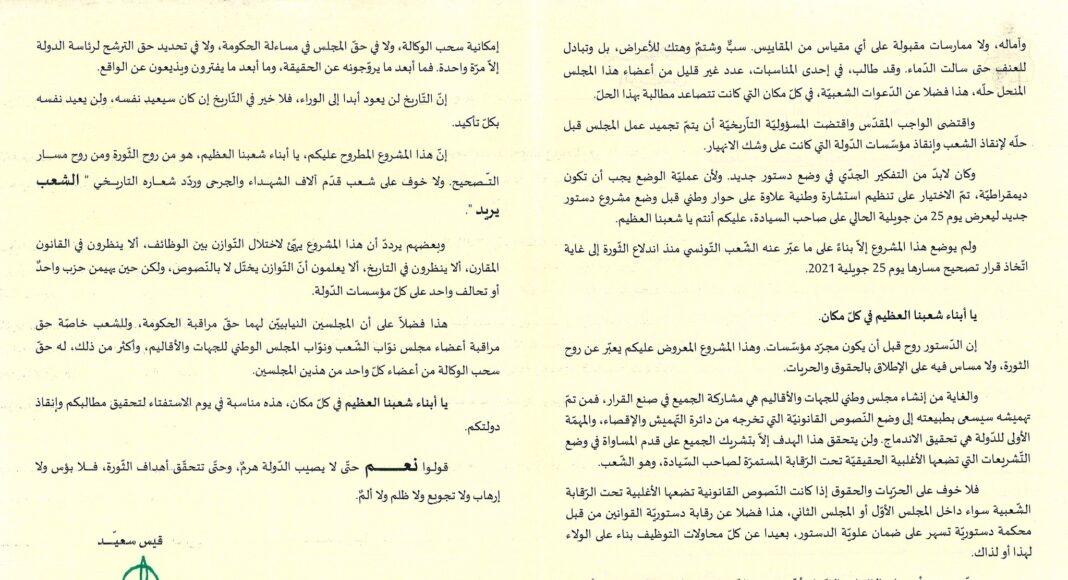 وآماله، ولا ممارسات مقبولة على أي مقياس من المقاييس. سبٌّ وشتمٌ وهتك للأعراض، بل وتبادل
للعنف حتى سالت الدّماء. وقد طالب، في إحدى المناسبات، عدد غير قليل من أعضاء هذا المجلس
المنحل حلّه، هذا فضلا عن الدعوات الشعبيّة، في كلّ مكان التي كانت تتصاعد مطالبة بهذا الحلّ.
واقتضى الواجب المقدّس واقتضت المسؤوليّة التاّريخيّة أن يتمّ تجميد عمل المجلس قبل
حلّه لإنقاذ الشعب وإنقاذ مؤسّسات الدّولة التي كانت على وشك الانهيار.
وكان لابدّ من التفكير الجدّي في وضع دستور جديد. ولأن عمليّة الوضع يجب أن تكون
ديمقراطيّة، تمّ الاختيار على تنظيم استشارة وطنية علاوة على حوار وطني قبل وضع مشروع دستور
جديد ليعرض يوم 25 من جويلية الحالي على صاحب السيادة، عليكم أنتم يا شعبنا العظيم.
ولم يوضع هذا المشروع إلاّ بناءً على ما عبّر عنه الشّعب التّونسي منذ اندلاع الثّورة إلى غاية
اتّخاذ قرار تصحيح مسارها يوم 25 جويلية 2021.
يا أبناء شعبنا العظيم في كلّ مكان.
إن الدّستور روح قبل أن يكون مجرّد مؤسّسات. وهذا المشروع المعروض عليكم يعبّر عن روح
الثورة، ولا مساس فيه على الإطلاق بالحقوق والحريات.
والغاية من إنشاء مجلس وطني للجهات والأقاليم هي مشاركة الجميع في صنع القرار، فمن تمّ
تهميشه سيسعى بطبيعته إلى وضع النّصوص القانونيّة التي تخرجه من دائرة التّهميش والإقصاء، والمهمّة
الأولى للدّولة هي تحقيق الاندماج. ولن يتحقق هذا الهدف إلاّ بتشريك الجميع على قدم المساواة في وضع
التّشريعات التي تضعها الأغلبية الحقيقيّة تحت الرّقابة المستمرّة لصاحب السّيادة، وهو الشّعب.
فلا خوف على الحرّيات والحقوق إذا كانت النّصوص القانونية تضعها الأغلبية تحت الرّقابة
الشّعبية سواء داخل المجلس الأوّل أو المجلس الثاني، هذا فضلا عن رقابة دستوريّة القوانين من قبل
محكمة دستوريّة تسهر على ضمان علويّة الدستور، بعيدا عن كلّ محاولات التوظيف بناء على الولاء
لهذا أو لذاك.
إمكانية سحب الوكالة، ولا في حقّ المجلس في مساءلة الحكومة، ولا في تحديد حق الترشح لرئاسة الدولة
إلاّ مرّة واحدة. فما أبعد ما يروّجونه عن الحقيقة، وما أبعد ما يفترون ويذيعون عن الواقع.
إنّ التّاريخ لن يعود أبدا إلى الوراء، فلا خير في التّاريخ إن كان سيعيد نفسه، ولن يعيد نفسه
بكلّ تأكيد.
إنّ هذا المشروع المطروح عليكم، يا أبناء شعبنا العظيم، هو من روح الثّورة ومن روح مسار
التّصحيح. ولا خوف على شعب قدّم آلاف الشهداء والجرحى وردّد شعاره التاريخي " الشعب
يريد ".
وبعضهم يرددّ أن هذا المشروع يهيّئ لاختلال التّوازن بين الوظائف، ألا ينظرون في القانون
المقارن، ألا ينظرون في التاريخ، ألا يعلمون أنّ التّوازن يختلّ لا بالنّصوص، ولكن حين يهيمن حزب واحدٌ
أو تحالف واحد على كلّ مؤسسات الدّولة.
هذا فضلاً على أن المجلسين النيابيّين لهما حقّ مراقبة الحكومة، وللشعب خاصّة حق
مراقبة أعضاء مجلس نوّاب الشّعب ونوّاب المجلس الوطني للجهات والأقاليم، وأكثر من ذلك، له حقّ
سحب الوكالة من أعضاء كلّ واحد من هذين المجلسين.
يا أبناء شعبنا العظيم في كلّ مكان، هذه مناسبة في يوم الاستفتاء لتحقيق مطالبكم وإنقاذ
دولتكم.
قولوا نعم حتّى لا يصيب الدّولة هرمٌ، وحتّى تتحقّق أهداف الثّورة، فلا بؤس ولا
إرهاب ولا تجويع ولا ظلم ولا ألمٌ.
قيس سعيّد